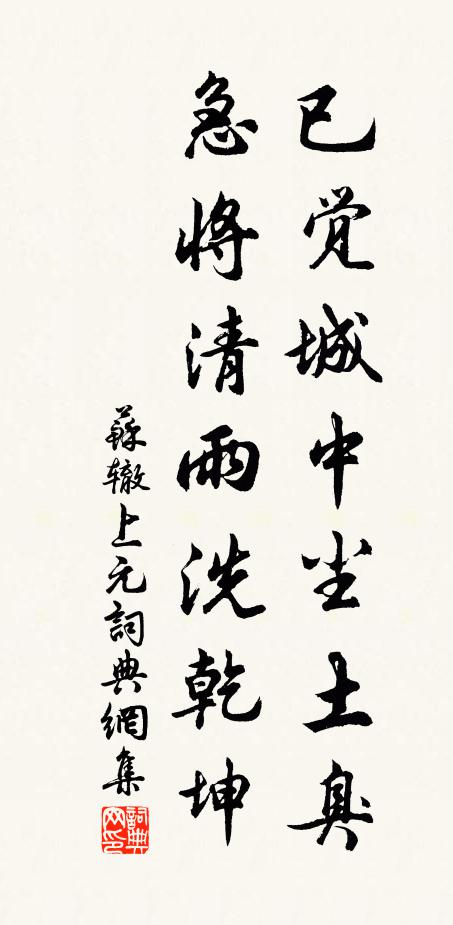 已觉城中尘土臭
急将清雨洗乾坤
蘇辙上元詞典網集
詞典网印